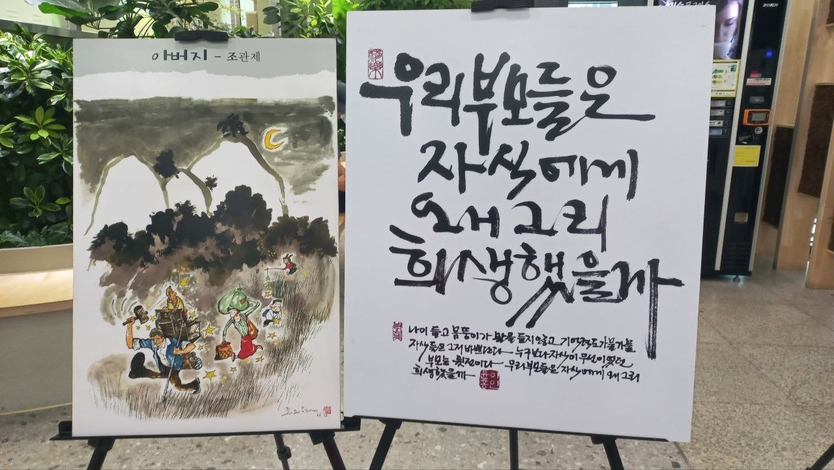 아버지 - 조관제
우리 부모들은
자식에게
왜 그리
희생했을까
나이 들고 몸뚱이가 말을 듣지 않고 기억력도 가물가물
자식들은 그저 바쁘단다 누구보다 자식이 우선이였던
부모는 뒷전이다 우리 부모들은 자식에게 왜 그리
희생했을까